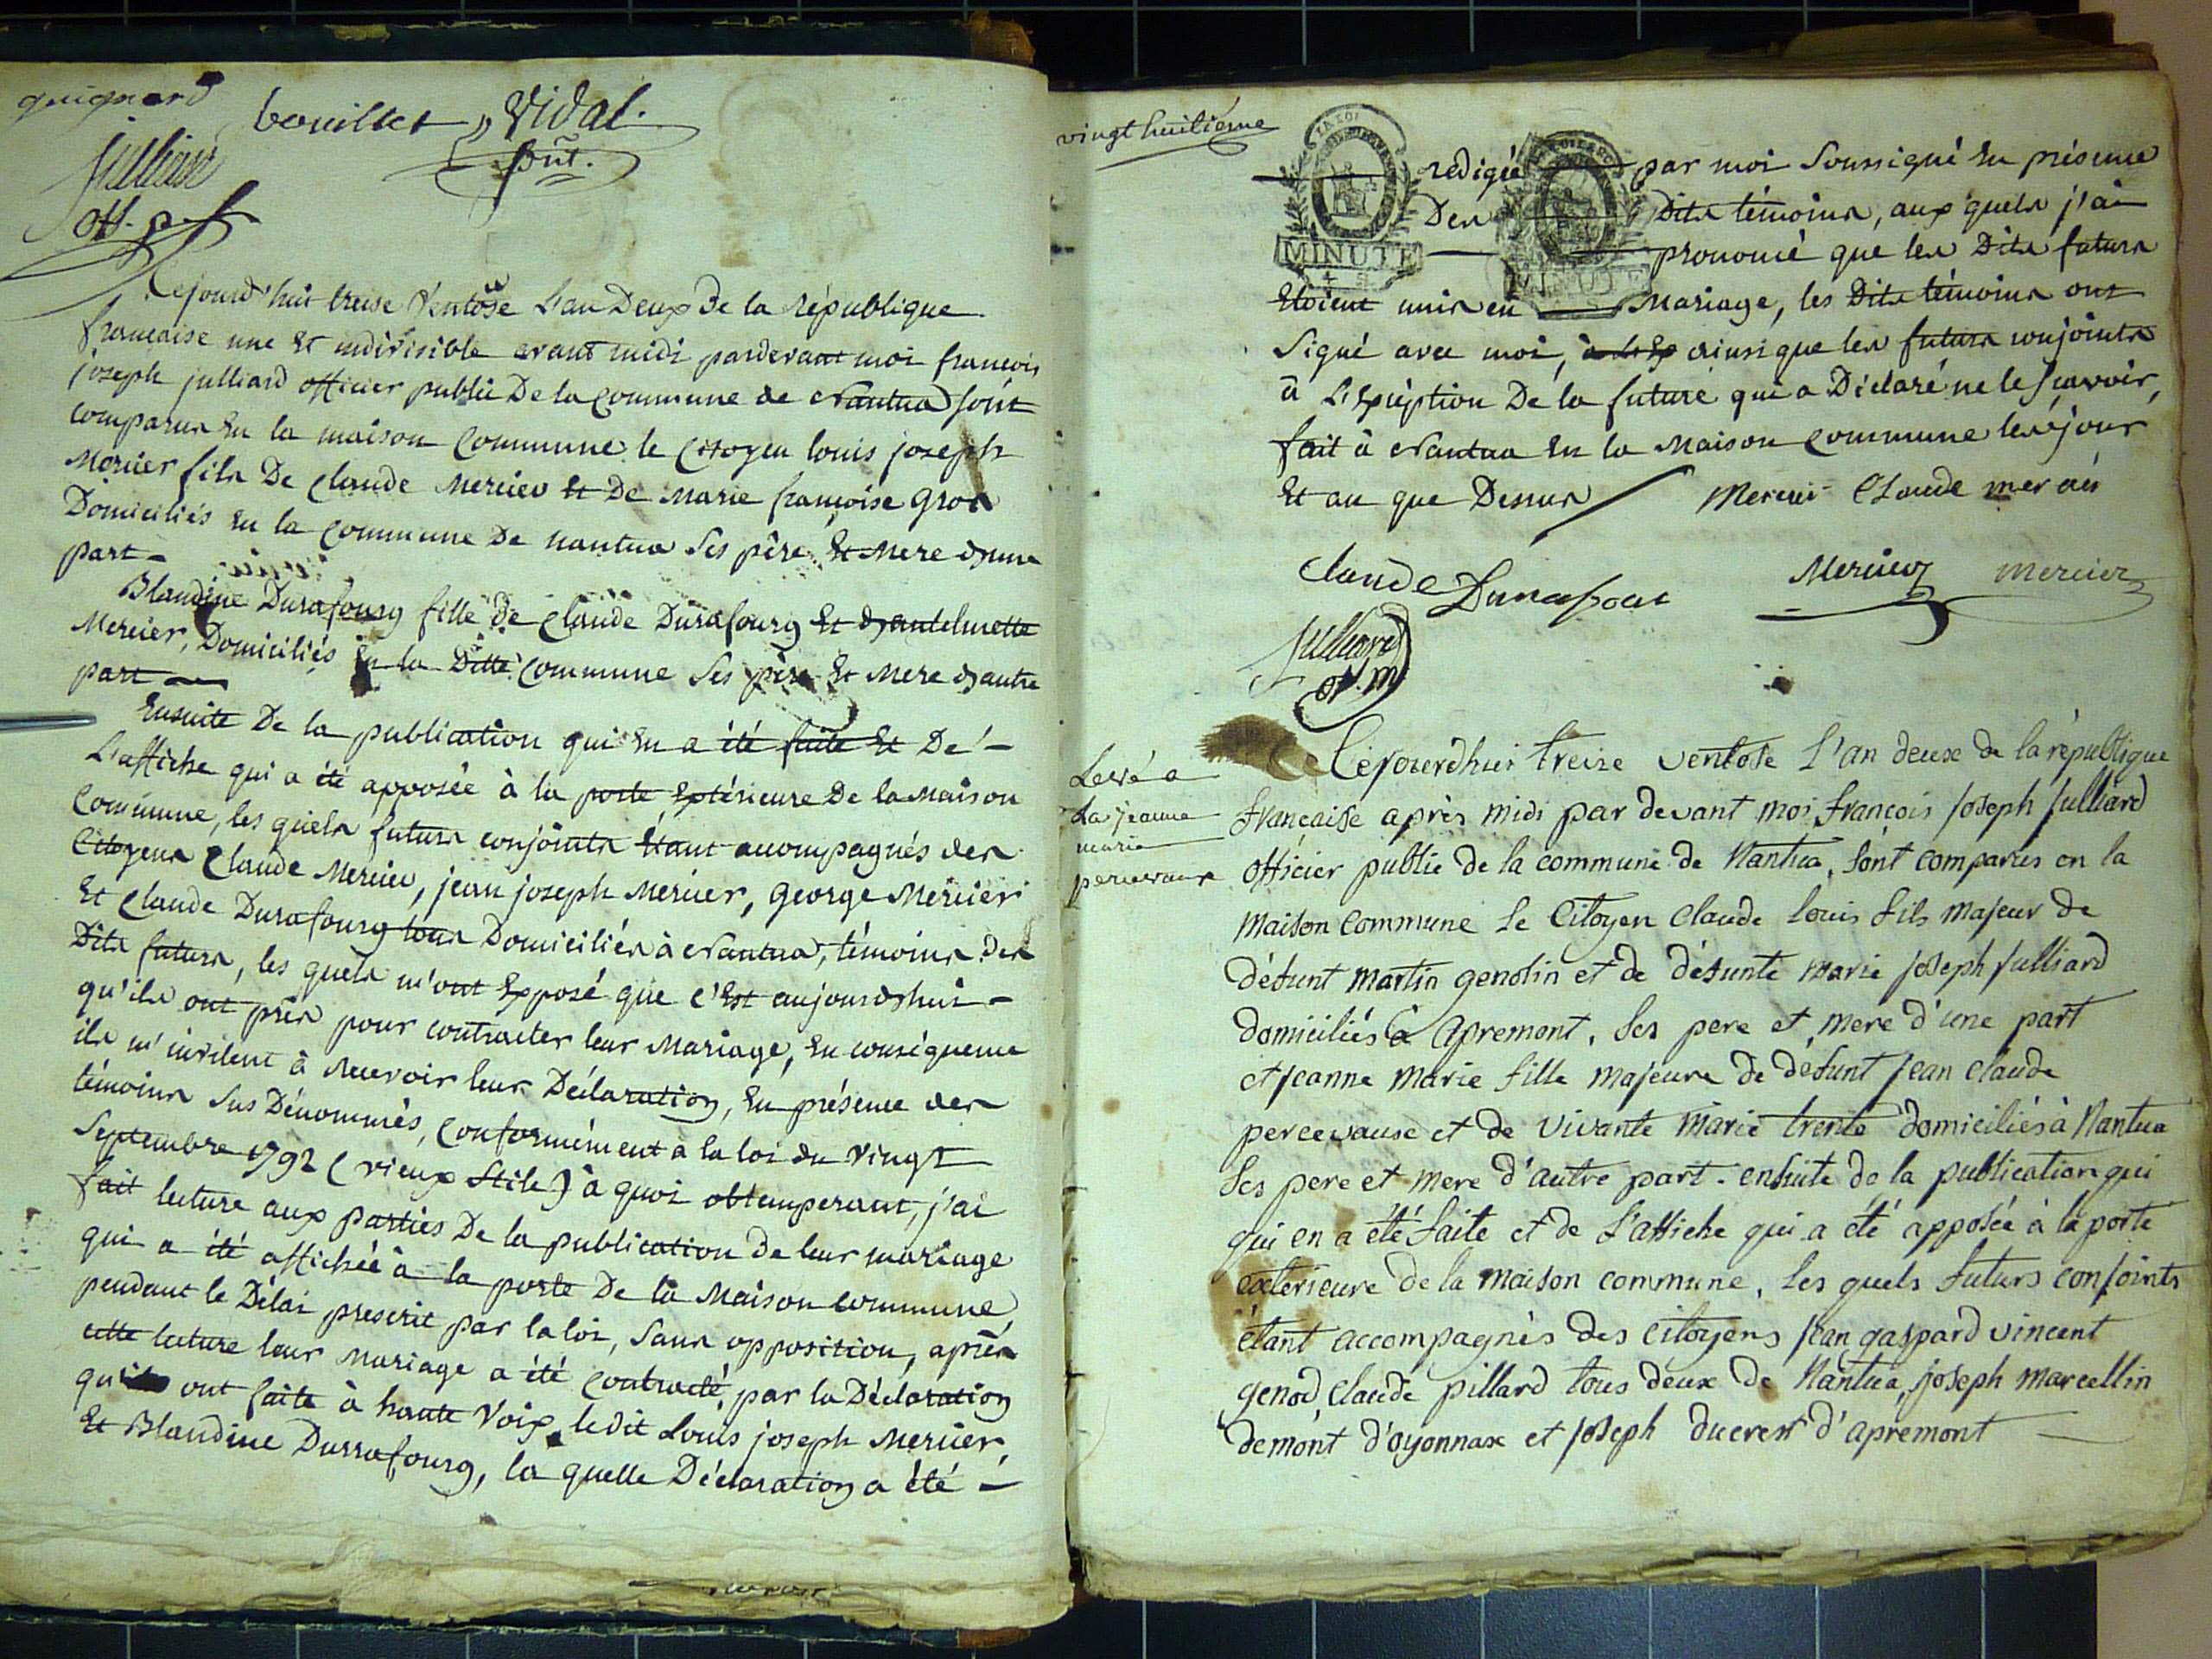 guignard bouillet Vidal.
Julliard pnt.
off. p
Cejourd'hui treise Ventôse L'an Deux De la république
française une Et indivisible avant midi pardevant moi françois
joseph julliard officier public De la Commune de Nantua sont
comparus En la maison Commune le Citoyen louis joseph
Mercier fils De Claude Mercier Et De Marie françoise Gros
Domiciliés En la Commune De nantua Ses père Et Mere d'une
part
Blandine Durafourg fille de Claude Durafourg Et d'antelmette
Mercier, Domiciliés En la Ditte Commune Ses père Et Mere d'autre
part
Ensuite De la publication qui En a été faite Et De
L'affiche qui a été apposée à la porte Extérieure De la Maison
Commune, les quels futurs conjoints Etant acompagnés des
Citoyens Claude Mercier, jean joseph Mercier, George Mercier
Et Claude Durafourg tous Domiciliés à Nantua, témoins Des
Dits futurs, les quels m'ont Exposé que c'Est aujourd'hui
qu'ils ont pris pour contracter leur Mariage, En conséquence
ils m'invitent à recevoir leur Déclaration, En présence des
témoins Sus Dénommés, Conformément a la loi du Vingt
Septembre 1792 (vieux Stile) à quoi obtemperant, j'ai
fait lecture aux parties De la publication De leur mariage
qui a été affichée à la porte De la Maison Commune,
pendant le Délai prescrit par la loi, Sans opposition, après
cette lecture leur Mariage a été Contracté, par la Déclaration
qu'ils ont faite à haute Voix, le dit Louis joseph Mercier,
Et Blandine Durrafourg, la quelle Déclaration a été
vingt huitième
MINUTE MINUTE
redigée par moi Soussigné En présence
Des Dits témoins, aux quels j'ai
prononcé que les Dits futurs
Etoient unis en Mariage, les Dits témoins ont
Signé avec moi, ainsi que les futurs conjoints
à L'Exception De la future qui a Déclaré ne le sçavoir,
fait à Nantua En la Maison Commune les jour
Et an que Dessus Mercier Claude mercier
Claude Durafour Mercier Mercier
Julliard
off. m
Levé a
La jeanne
marie
percevaux
Cejourdhui treize ventose L'an deux de la république
française après midi par devant moi françois joseph julliard
officier public de la commune de Nantua, sont comparus en la
maison commune le Citoyen Claude louis fils majeur de
défunt martin genolin et de défunte marie joseph julliard
domiciliés à Apremont, ses pere et mere d'une part
et jeanne marie fille majeure de défunt jean claude
percevause et de vivante marie trente domiciliés à Nantua
ses pere et mere d'autre part. ensuite de la publication qui
qui en a été faite et de L'affiche qui a été apposée à la porte
exterieure de la maison commune, les quels futurs conjoints
étant accompagnés des citoyens jean gaspard vincent
genod, claude pillard tous deux de Nantua, joseph marcellin
demont d'oyonnax et joseph ducrest d'apremont